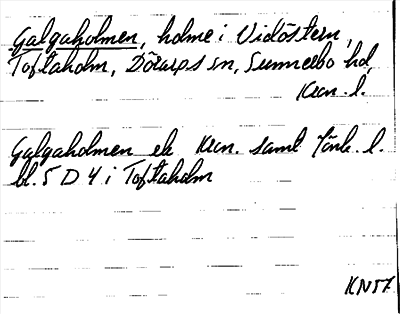 Galgaholmen, holme i Vidöstern,
Toftaholm, Dörarps sn, Sunnerbo hd,
Kron. l.
Galgaholmen ek Kron. samt Jönk. l.
bl. 5 D 4 i Toftaholm
KN57